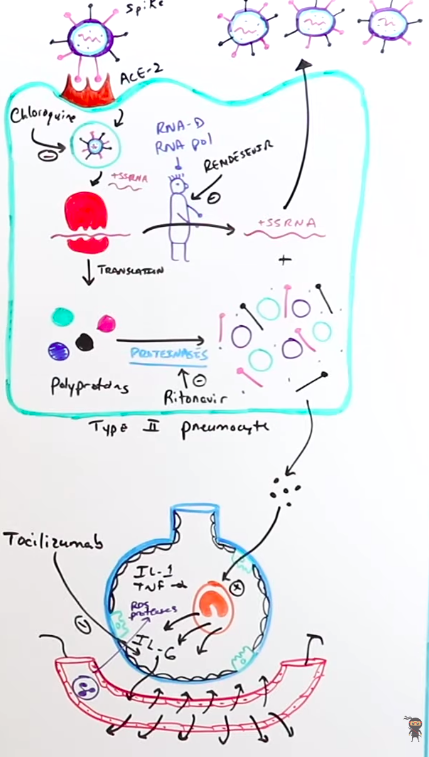 Spike
ACE-2
Chloroquine
⊖
RNA-D
RNA pol
RENDESEVIR
⊖
+SSRNA
+SSRNA
+
TRANSLATION
PROTEINASES
⊖
polyproteins
Ritonavir
Type II pneumocyte
Tocilizumab
⊖
IL-1
TNF-α
⊕
ROS
proteases
IL-6